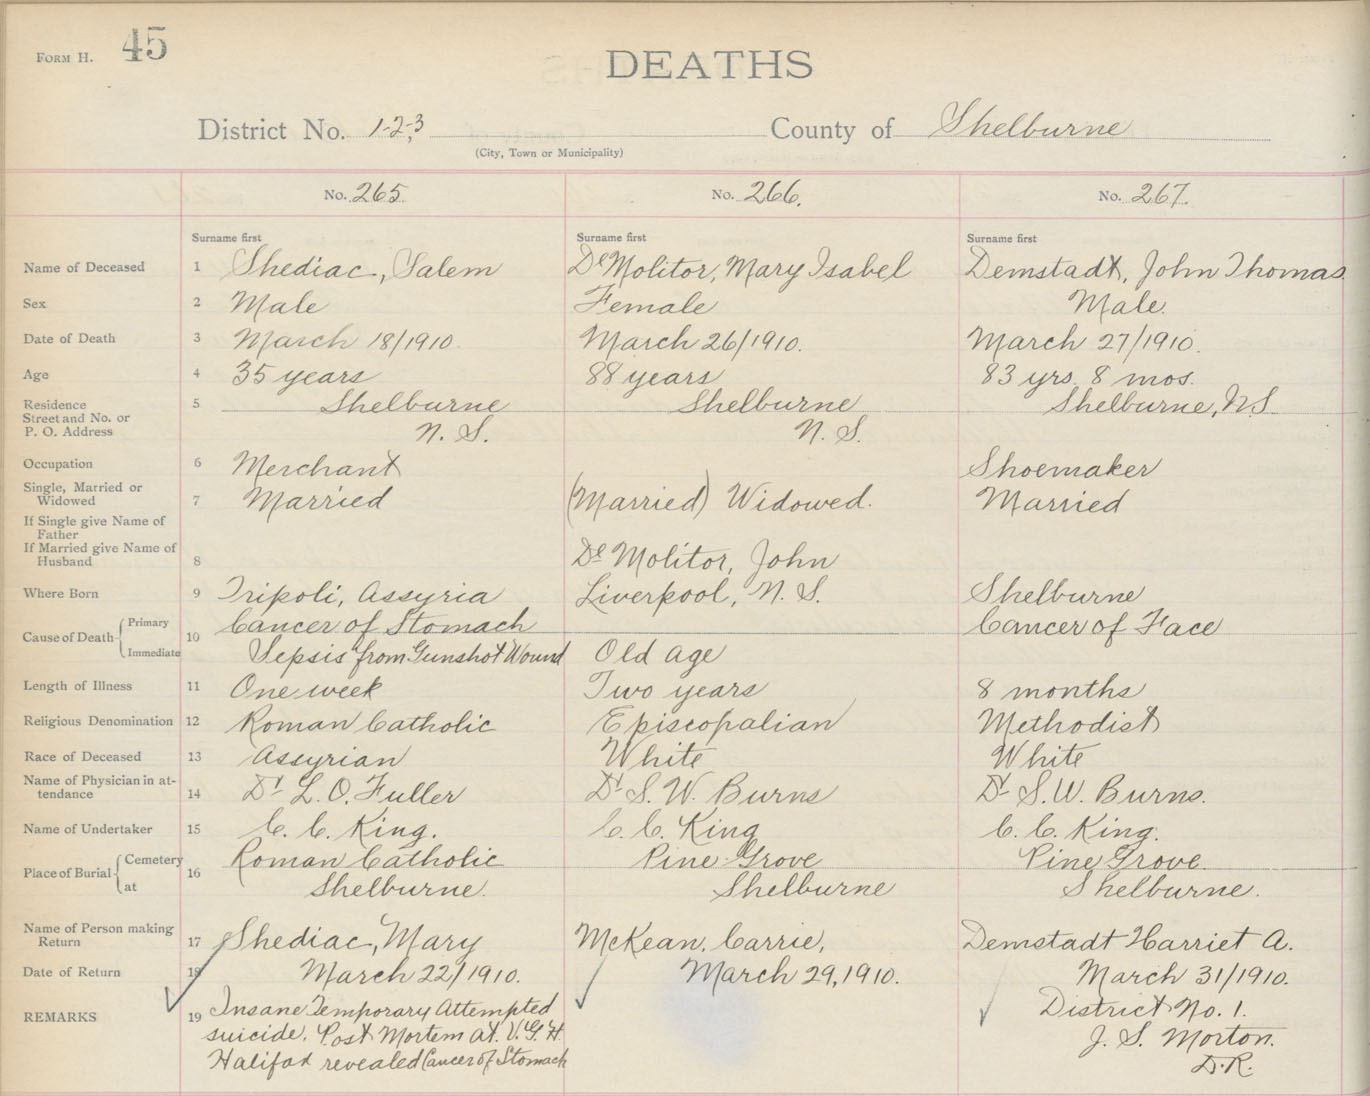 FORM H. 45
DEATHS
District No. 1-2-3 County of Shelburne
(City, Town or Municipality)
No. 265. No. 266. No. 267.
Surname first Surname first Surname first
Name of Deceased 1 Shediac, Salem De Molitor, Mary Isabel Demstadt, John Thomas
Sex 2 Male Female Male.
Date of Death 3 March 18/1910. March 26/1910. March 27/1910.
Age 4 35 years 88 years 83 yrs. 8 mos.
Residence 5 Shelburne Shelburne Shelburne, N.S.
Street and No. or
P. O. Address N. S. N. S.
Occupation 6 Merchant Shoemaker
Single, Married or
Widowed 7 Married (Married) Widowed. Married
If Single give Name of
Father
If Married give Name of
Husband 8 De Molitor, John
Where Born 9 Tripoli, Assyria Liverpool, N. S. Shelburne
Cause of Death 10 Primary Cancer of Stomach Cancer of Face
Immediate Sepsis from Gunshot Wound Old age
Length of Illness 11 One week Two years 8 months
Religious Denomination 12 Roman Catholic Episcopalian Methodist
Race of Deceased 13 Assyrian White White
Name of Physician in at-
tendance 14 Dr L. O. Fuller Dr S. W. Burns Dr S. W. Burns.
Name of Undertaker 15 C. C. King. C. C. King C. C. King.
Place of Burial 16 Cemetery Roman Catholic Pine Grove Pine Grove.
at Shelburne. Shelburne Shelburne.
Name of Person making
Return 17 Shediac, Mary McKean, Carrie, Demstadt Harriet A.
Date of Return 18 March 22/1910. March 29, 1910. March 31/1910.
REMARKS 19 Insane Temporary Attempted District No. 1.
suicide. Post Mortem at. V. G. H. J. S. Morton.
Halifax revealed Cancer of Stomach D.R.